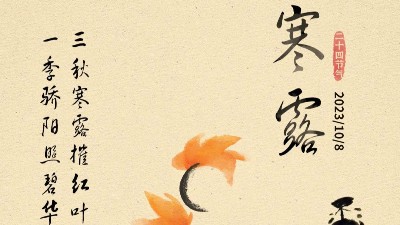 寒露
二十四节气
2023/10/8
三秋寒露摧红叶
一季骄阳照碧华